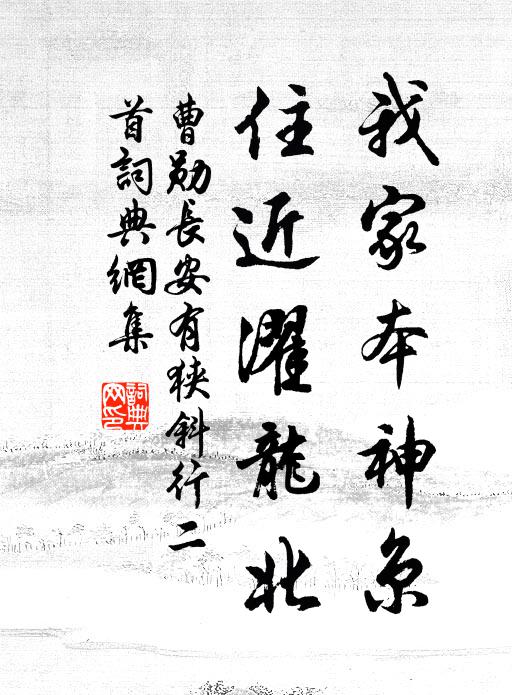 我家本神京
住近濯龍北
曹勛長安有狹斜行二
首詞典網集
詞典網印